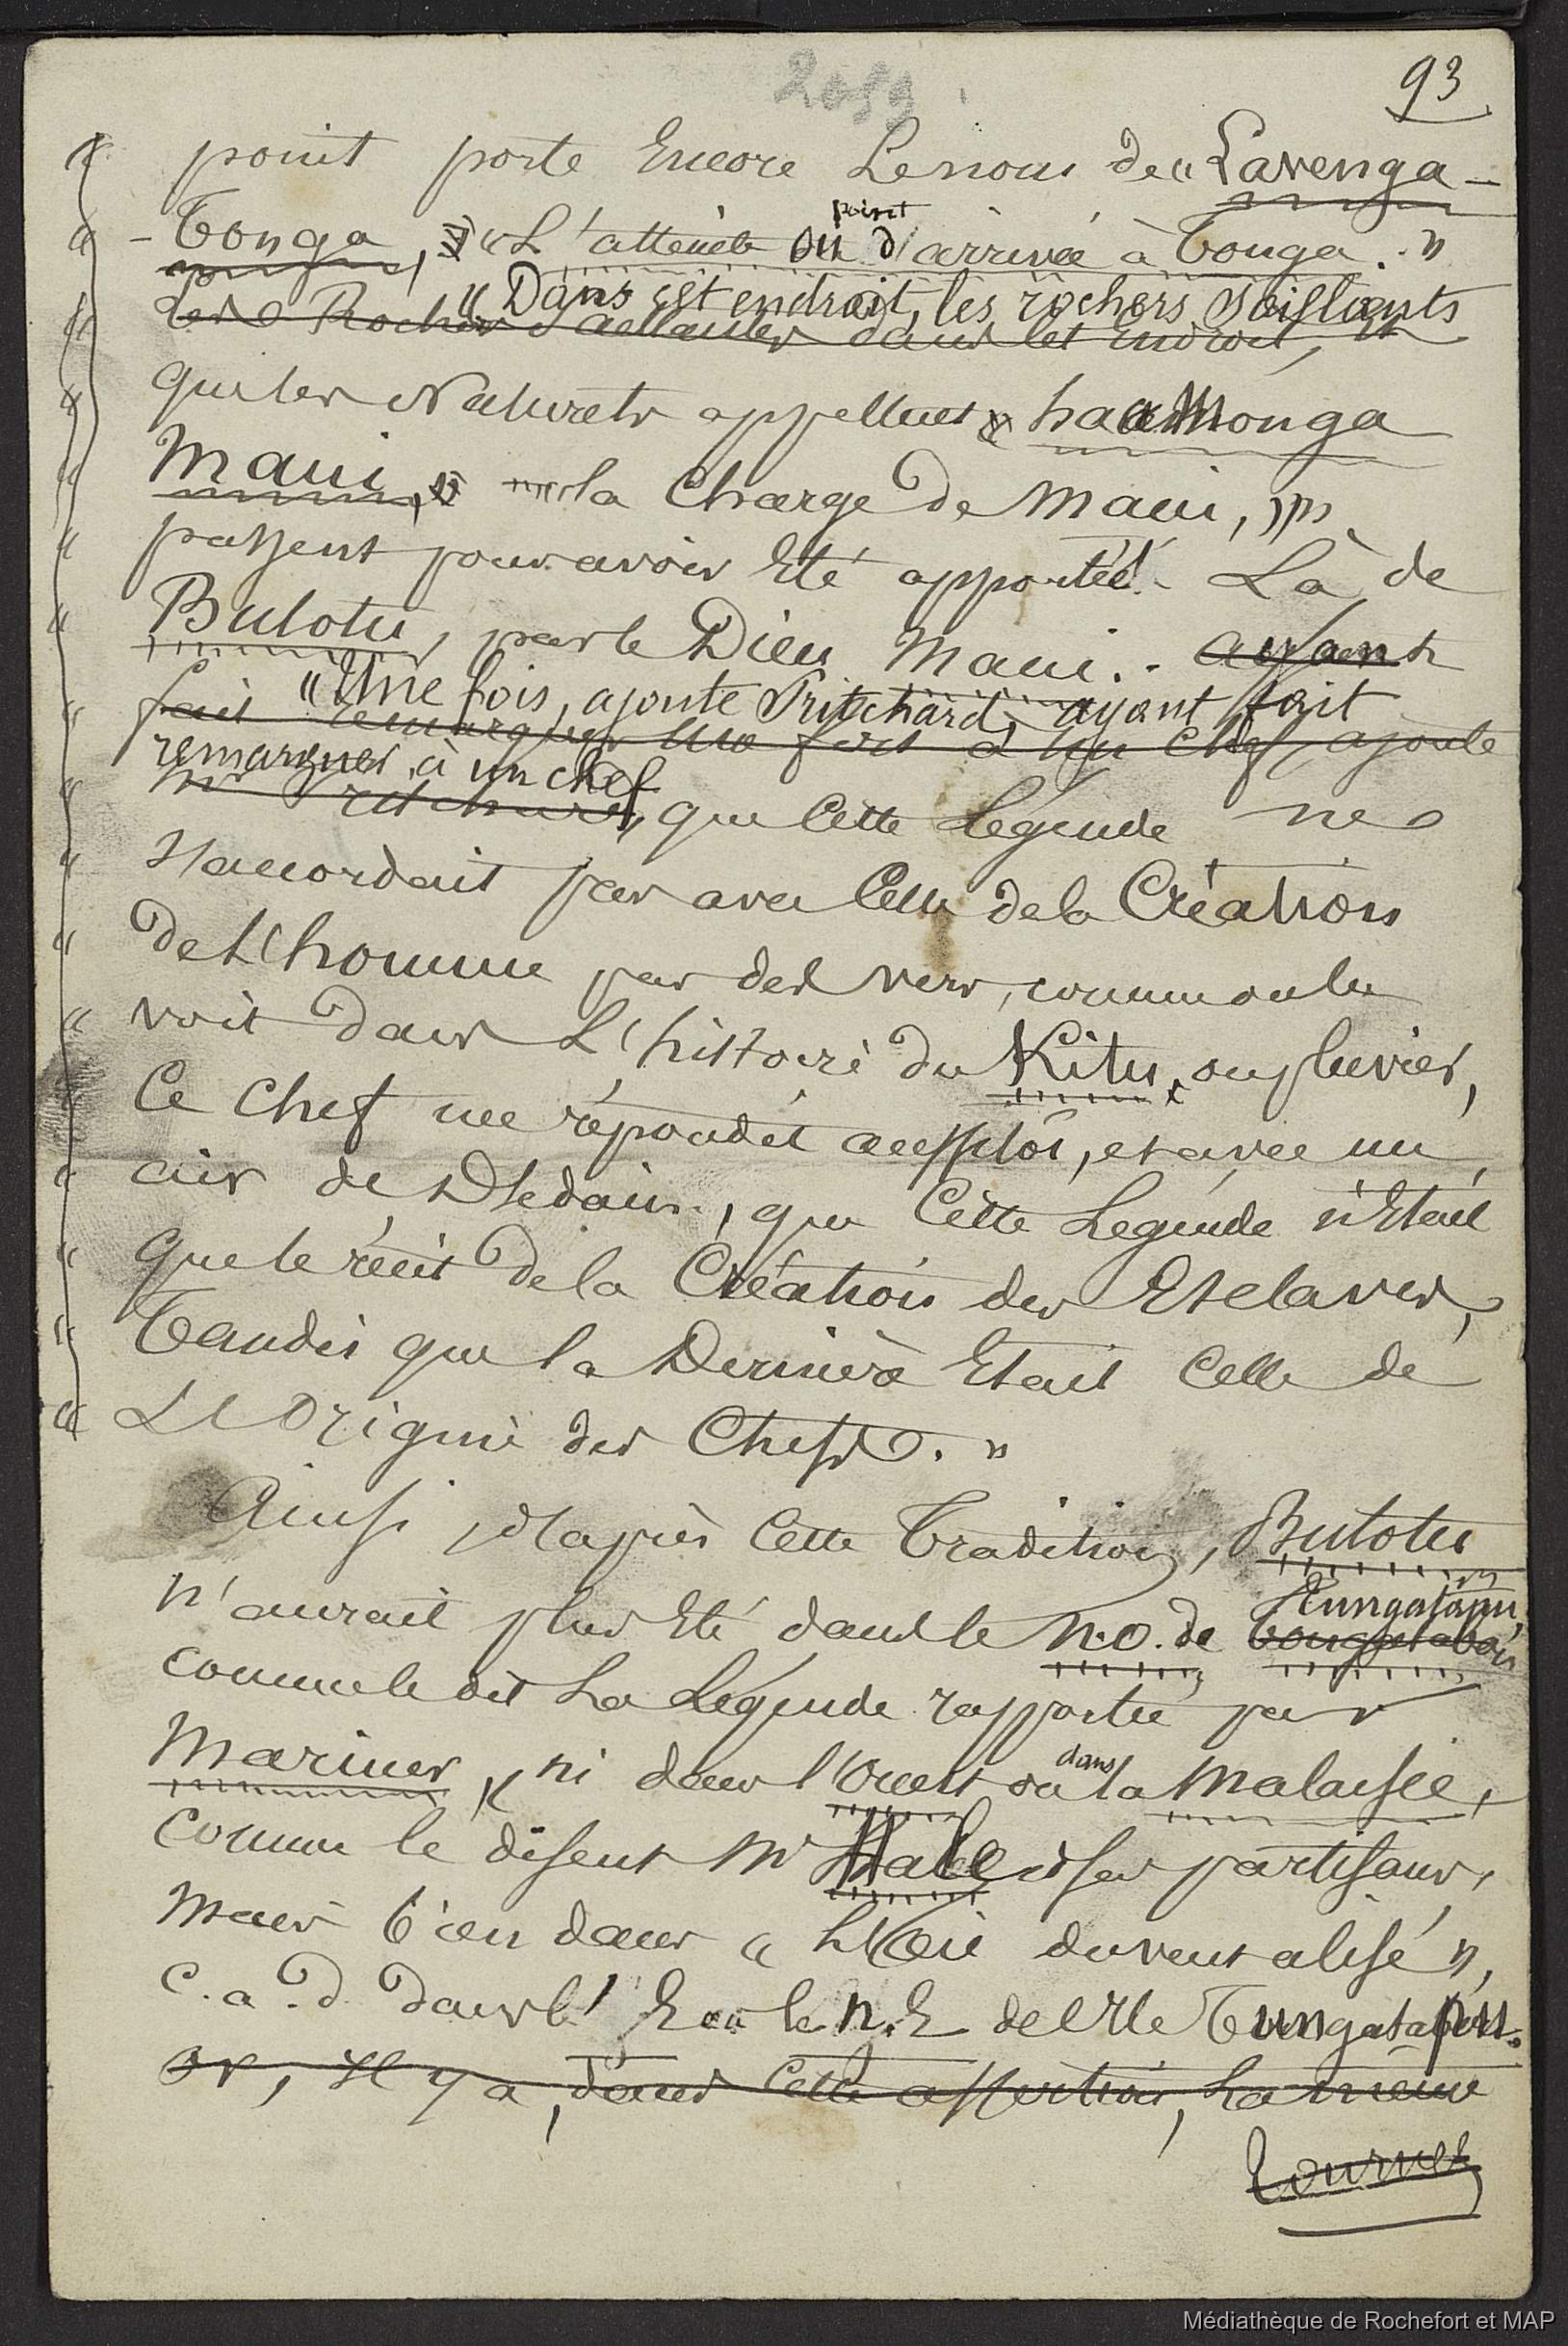 93
2059
" point porte Encore Le nom de " Lavenga-
" -Tonga, " L'atteinte ou point d'arrivée à Tonga. "
" " Dans cet endroit, les rochers saillants
Les Rochers saillants dans cet Endroit,
" que les Naturels appellent haamonga
" Maui, la Charge de Maui, "
" passent pour avoir Eté apportés Là de
" Bulotu, par le Dieu Maui. ayant
" " Une fois, ajoute Pritchard, ayant fait
fait remarquer une fois à un chef, ajoute
remarquer à un chef
Mr Pritchard, que Cette Légende ne
" s'accordait pas avec Celle de la Création
" de L'homme par des vers, comme on le
" voit dans L'histoire du Kitu, ou pluvier,
" Ce Chef me répondit aussitôt, et avec un
" air de Dédain, que Cette Légende n'Etait
" que le récit de la Création des Esclaves,
" Tandis que la Dernière Etait Celle de
" L'Origine des Chefs. "
Ainsi d'après Cette Tradition, Bulotu
n'aurait plus Eté dans le N.O. de Tongatabou
Tungatapu,
comme le dit La Légende rapportée par
Mariner, ni dans l'Ouest ou dans la Malaisie,
Comme le disent Mr Hale et ses partisans,
Mais bien dans " L'Œil du vent alisé ",
C.a.d. Dans l'E ou le N.E de l'Ile Tungatapu.
Or, Il y a, dans Cette assertion, La même
Tournez
Médiathèque de Rochefort et MAP